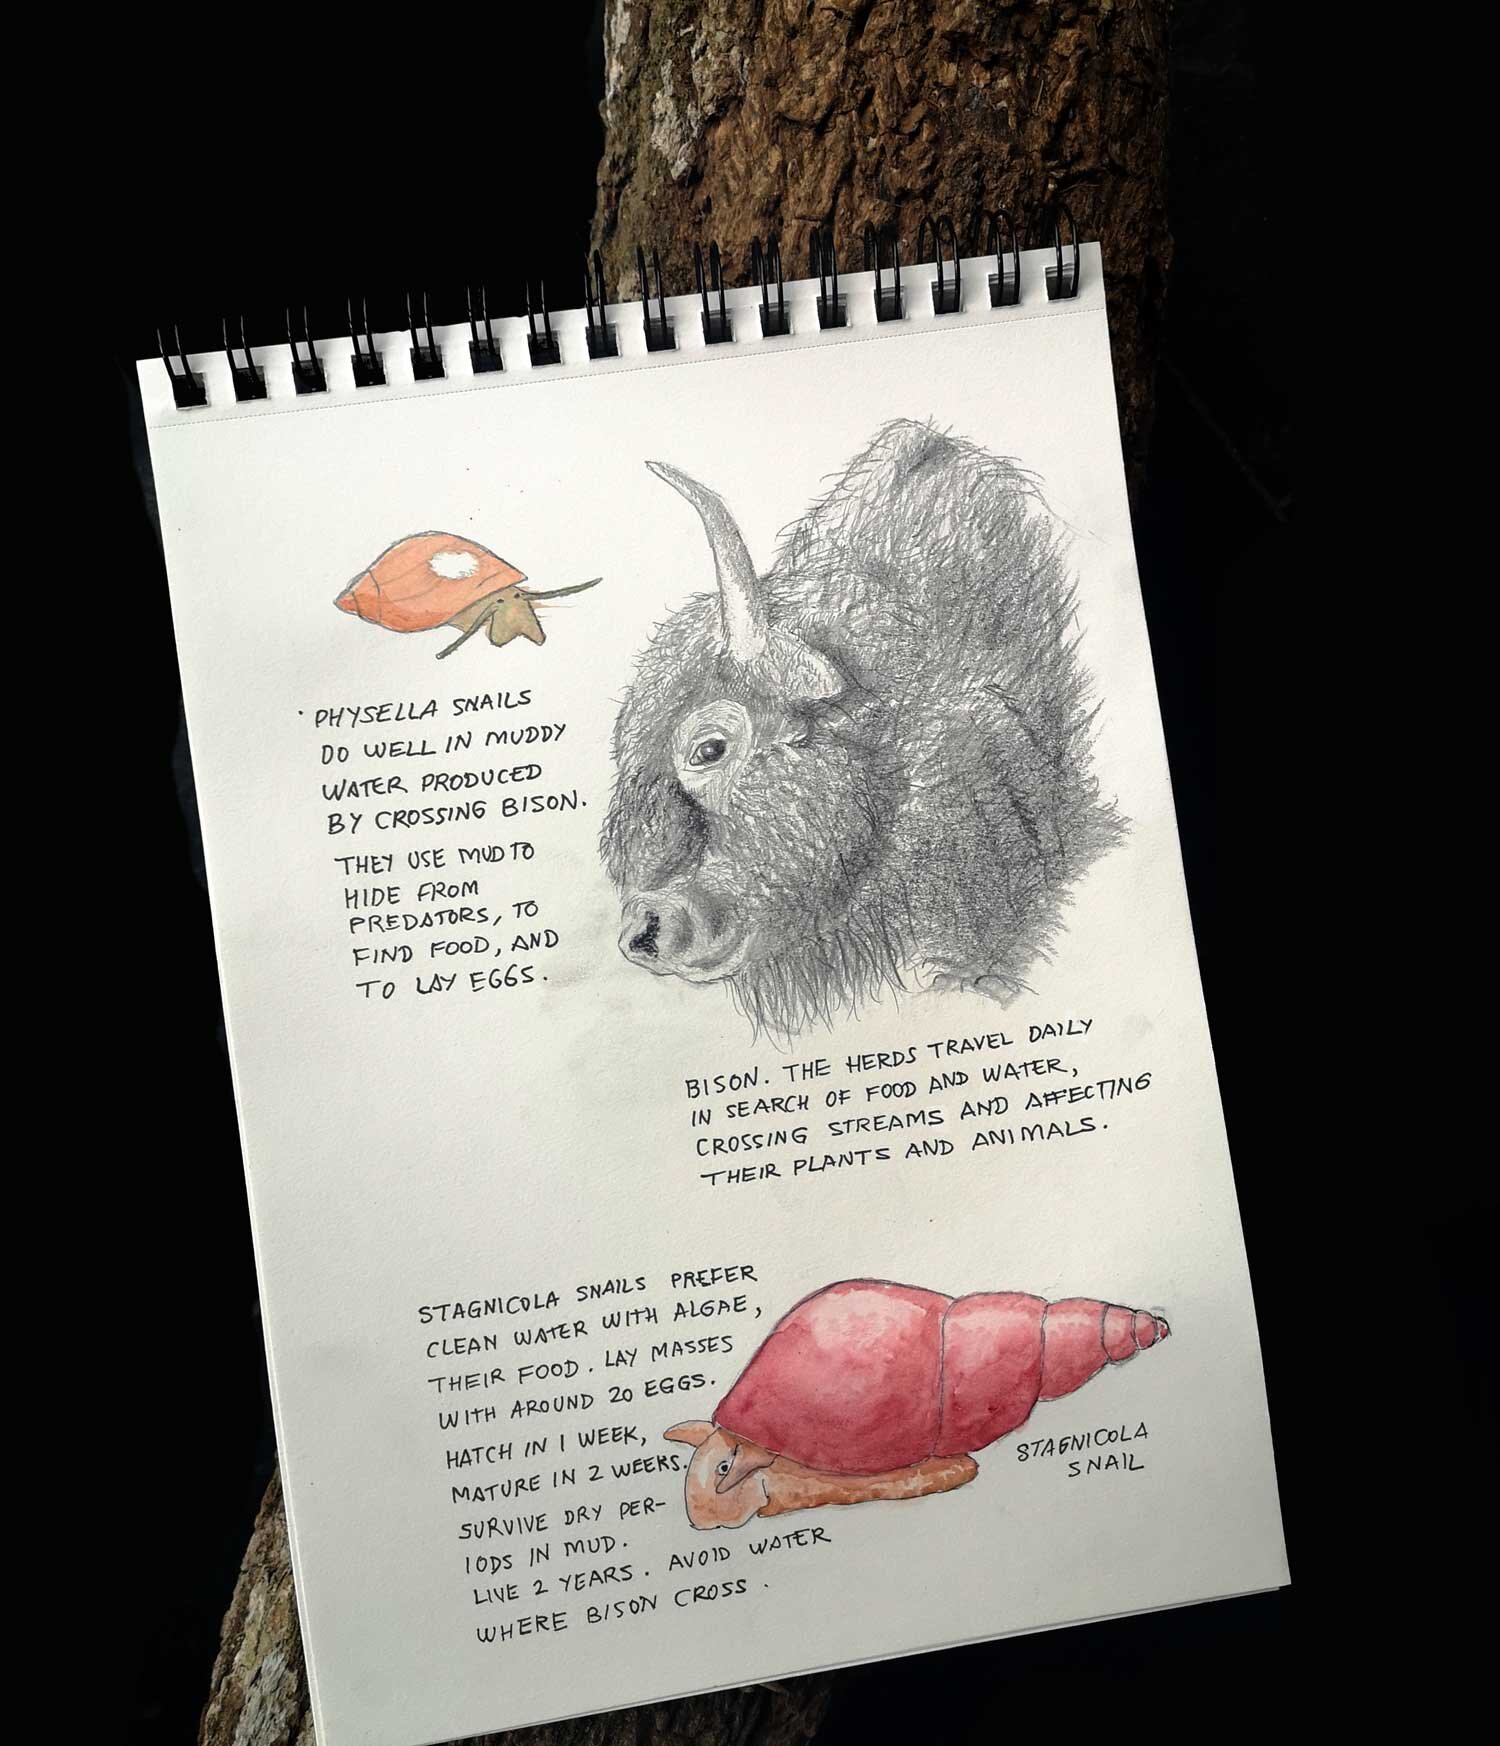 · PHYSELLA SNAILS
DO WELL IN MUDDY
WATER PRODUCED
BY CROSSING BISON.
THEY USE MUD TO
HIDE FROM
PREDATORS, TO
FIND FOOD, AND
TO LAY EGGS.
BISON. THE HERDS TRAVEL DAILY
IN SEARCH OF FOOD AND WATER,
CROSSING STREAMS AND AFFECTING
THEIR PLANTS AND ANIMALS.
STAGNICOLA SNAILS PREFER
CLEAN WATER WITH ALGAE,
THEIR FOOD. LAY MASSES
WITH AROUND 20 EGGS.
HATCH IN 1 WEEK,
MATURE IN 2 WEEKS.
SURVIVE DRY PER-
IODS IN MUD.
LIVE 2 YEARS. AVOID WATER
WHERE BISON CROSS.
STAGNICOLA
SNAIL